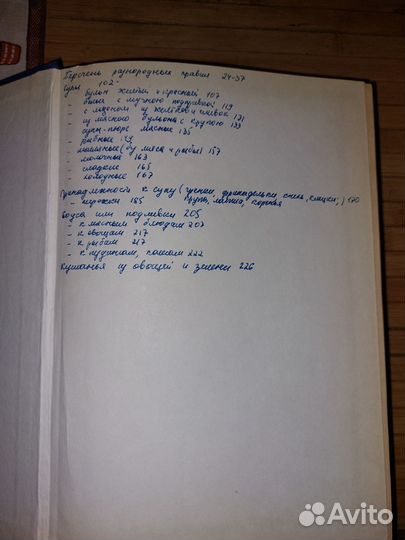 Перечень разнородных правил 24-57
Супы 102
- бульон желтый и красный 107
- белые с мучною подправкой 119
- с льезоном из желтков и сливок 131
- из мясного бульона с крупою 133
- супы-пюре мясные 135
- рыбные 143
- масляные (без мяса и рыбы) 157
- молочные 163
- сладкие 165
- холодные 167
Принадлежности к супу (гренки, фрикадельки, клецки,) 170
- пирожки 185 крупа, лапша, коренья
Соуса или подливки 205
- к мясным блюдам 207
- к овощам 217
- к рыбам 217
- к пудингам, кашам 222
Кушанья из овощей и зелени 226
Avito